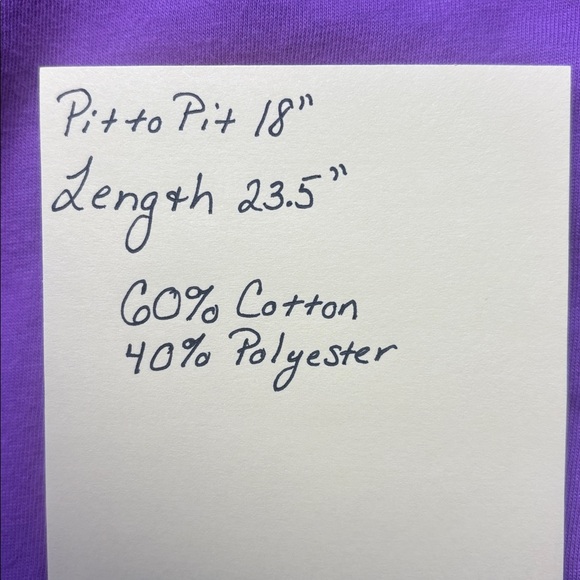 Pit to Pit 18"
Length 23.5"
60% Cotton
40% Polyester